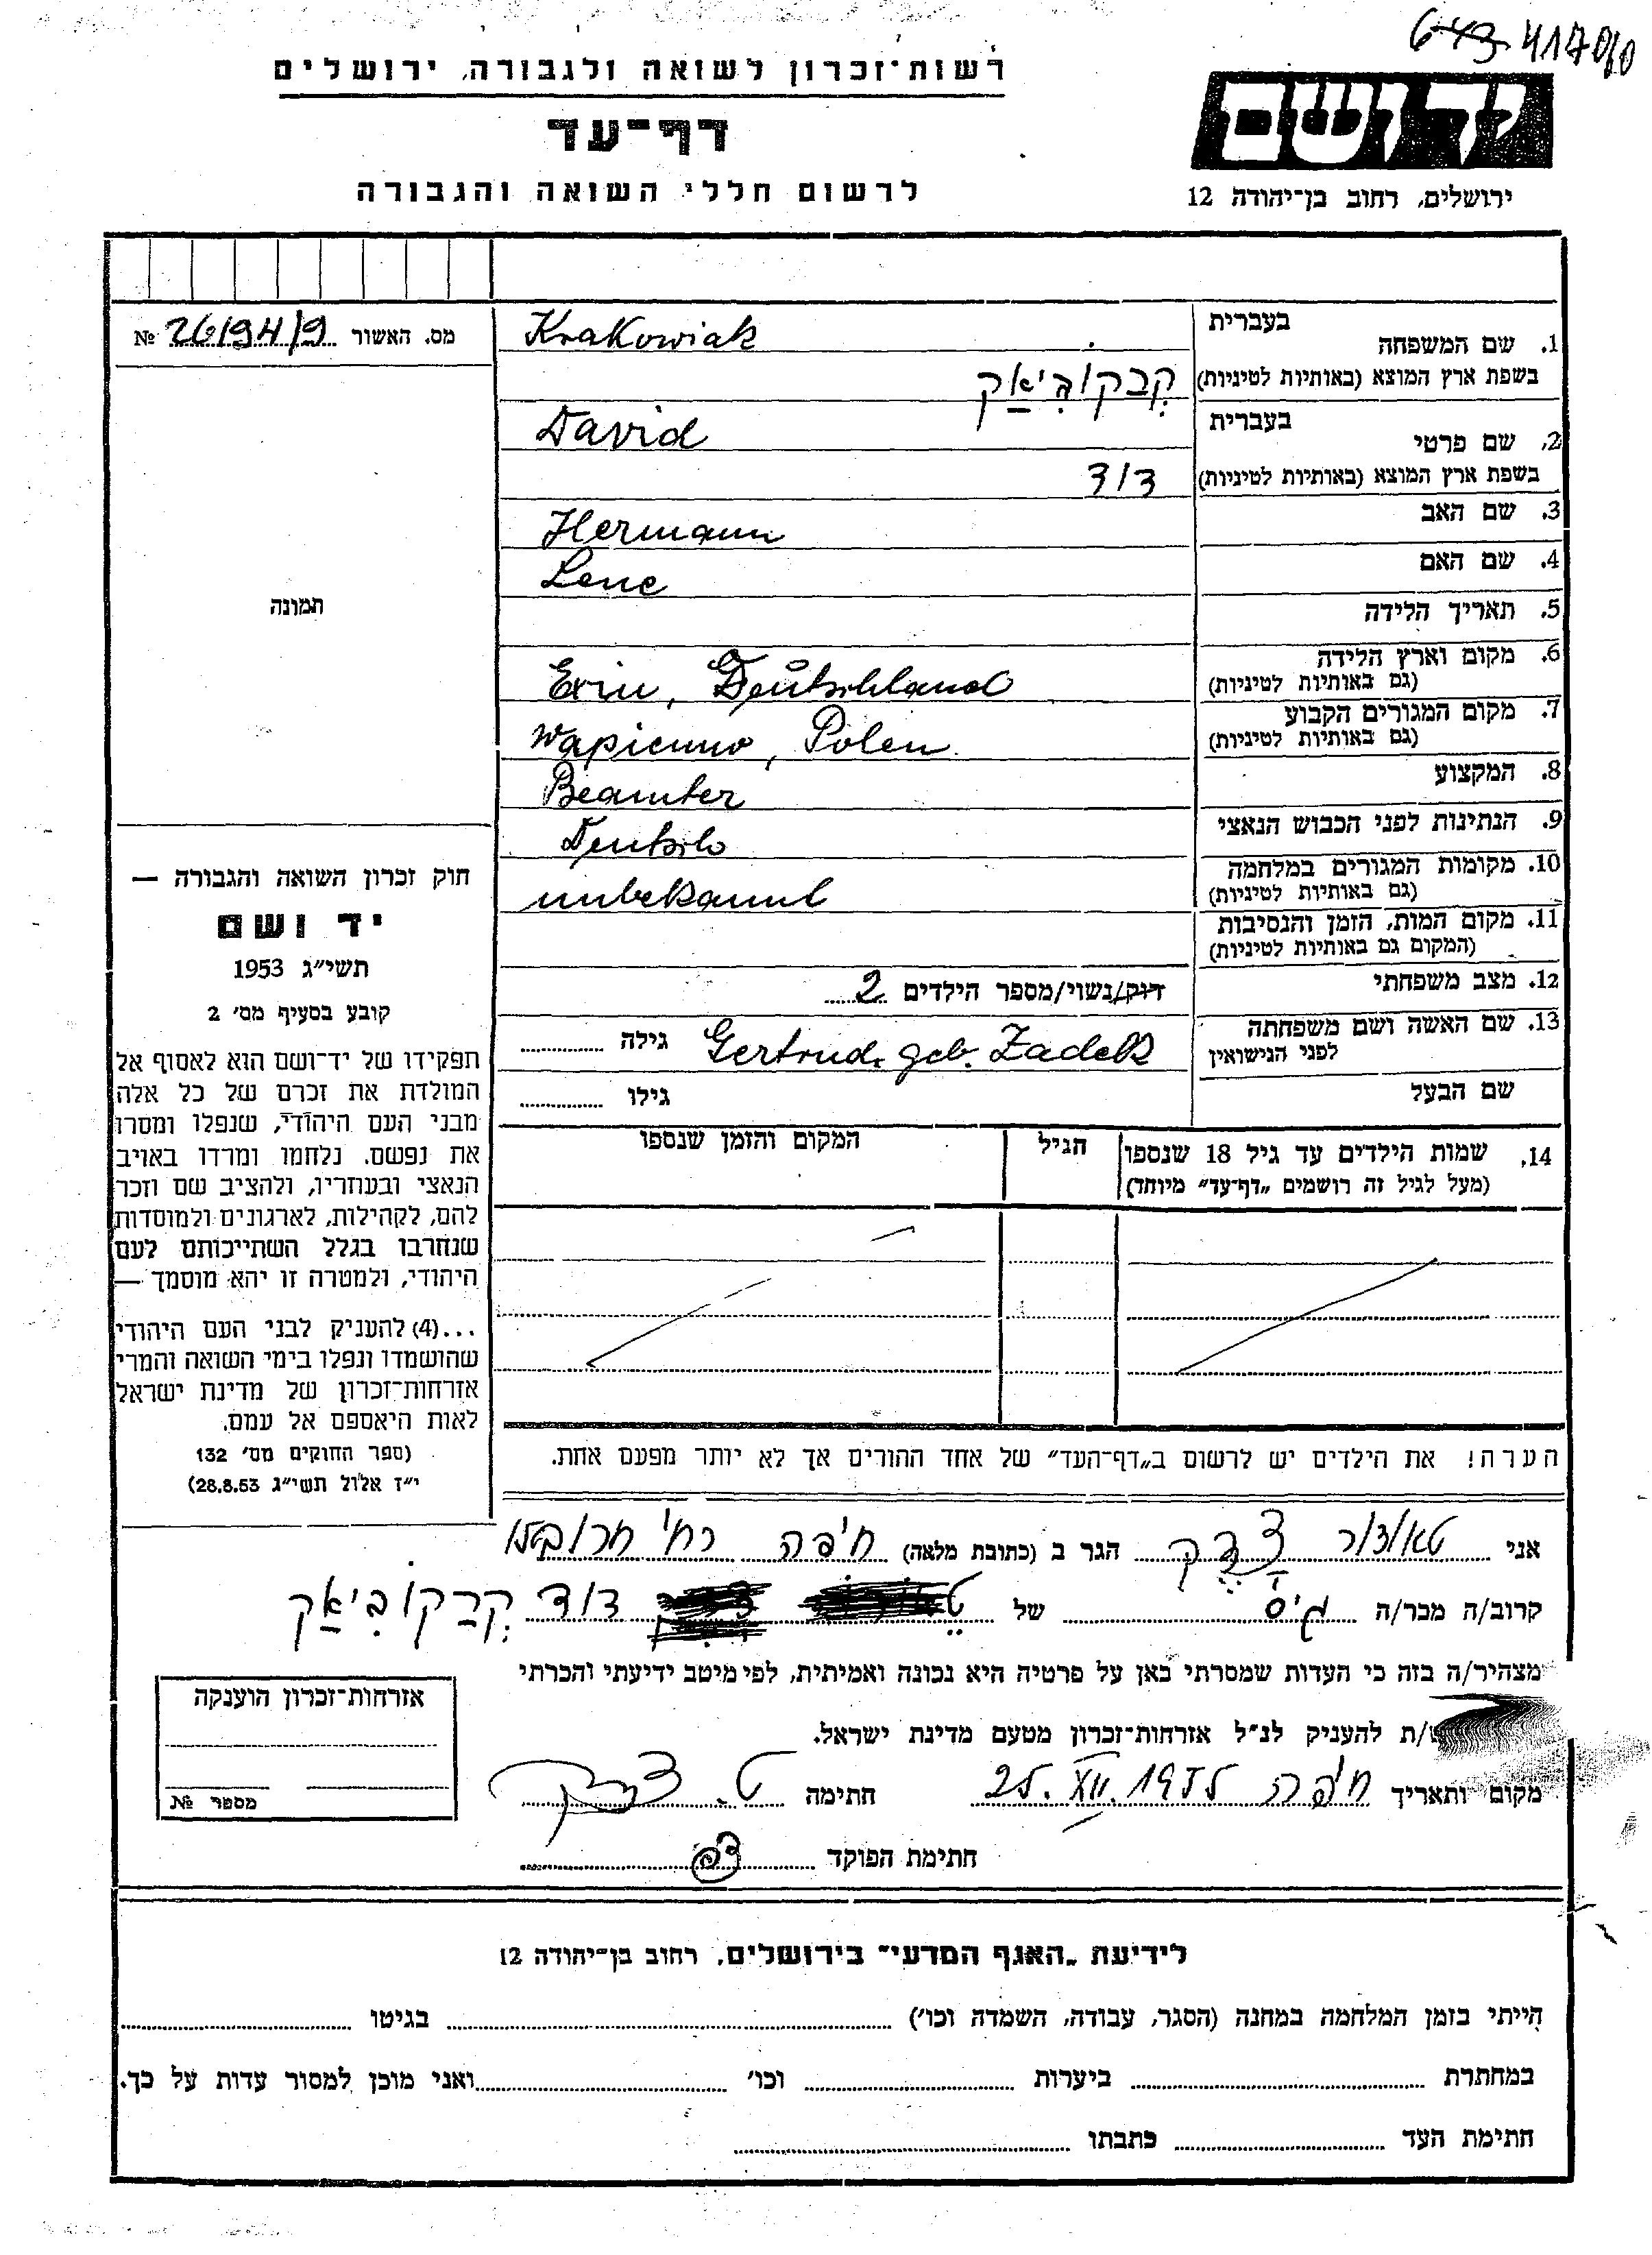 643 41780/0
רשות־זכרון לשואה ולגבורה, ירושלים
דף־עד
לרשום חללי השואה והגבורה
יד ושם
ירושלים, רחוב בן־יהודה 12
מס. האשור 26194/9 №
תמונה
1. שם המשפחה
בעברית Krakowiak
בשפת ארץ המוצא (באותיות לטיניות) קרקוביאק
2. שם פרטי
בעברית David
בשפת ארץ המוצא (באותיות לטיניות) דוד
3. שם האב Hermann
4. שם האם Lene
5. תאריך הלידה
6. מקום וארץ הלידה
(גם באותיות לטיניות) Exin, Deutschland
7. מקום המגורים הקבוע
(גם באותיות לטיניות) Wapienno, Polen
8. המקצוע Beamter
9. הנתינות לפני הכבוש הנאצי Deutsch
10. מקומות המגורים במלחמה
(גם באותיות לטיניות) unbekannt
11. מקום המות, הזמן והנסיבות
(המקום גם באותיות לטיניות)
12. מצב משפחתי רוק/נשוי/מספר הילדים 2
13. שם האשה ושם משפחתה
לפני הנישואין Gertrud. geb. Zadek גילה
שם הבעל גילו
14. שמות הילדים עד גיל 18 שנספו
(מעל לגיל זה רושמים „דף־עד" מיוחד)
הגיל
המקום והזמן שנספו
הערה! את הילדים יש לרשום ב„דף־העד" של אחד ההורים אך לא יותר מפעם אחת.
חוק זכרון השואה והגבורה —
יד ושם
תשי"ג 1953
קובע בסעיף מס' 2
תפקידו של יד־ושם הוא לאסוף אל
המולדת את זכרם של כל אלה
מבני העם היהודי, שנפלו ומסרו
את נפשם, נלחמו ומרדו באויב
הנאצי ובעוזריו, ולהציב שם וזכר
להם, לקהילות, לארגונים ולמוסדות
שנחרבו בגלל השתייכותם לעם
היהודי, ולמטרה זו יהא מוסמך —
...(4) להעניק לבני העם היהודי
שהושמדו ונפלו בימי השואה והמרי
אזרחות־זכרון של מדינת ישראל
לאות היאספם אל עמם.
(ספר החוקים מס' 132
י"ז אלול תשי"ג 28.8.53)
אני טאודור צדק הגר ב (כתובת מלאה) חיפה רח'
קרוב/ה מכר/ה גיס של דוד קרקוביאק
מצהיר/ה בזה כי העדות שמסרתי כאן על פרטיה היא נכונה ואמיתית, לפי מיטב ידיעתי והכרתי
ת/ להעניק לנ"ל אזרחות־זכרון מטעם מדינת ישראל.
מקום ותאריך חיפה 25.XII.1955 חתימה ט. צדק
חתימת הפוקד
אזרחות־זכרון הוענקה
מספר №
לידיעת „האגף המדעי" בירושלים, רחוב בן־יהודה 12
הייתי בזמן המלחמה במחנה (הסגר, עבודה, השמדה וכו') בגיטו
במחתרת ביערות וכו' ואני מוכן למסור עדות על כך.
חתימת העד כתבתו